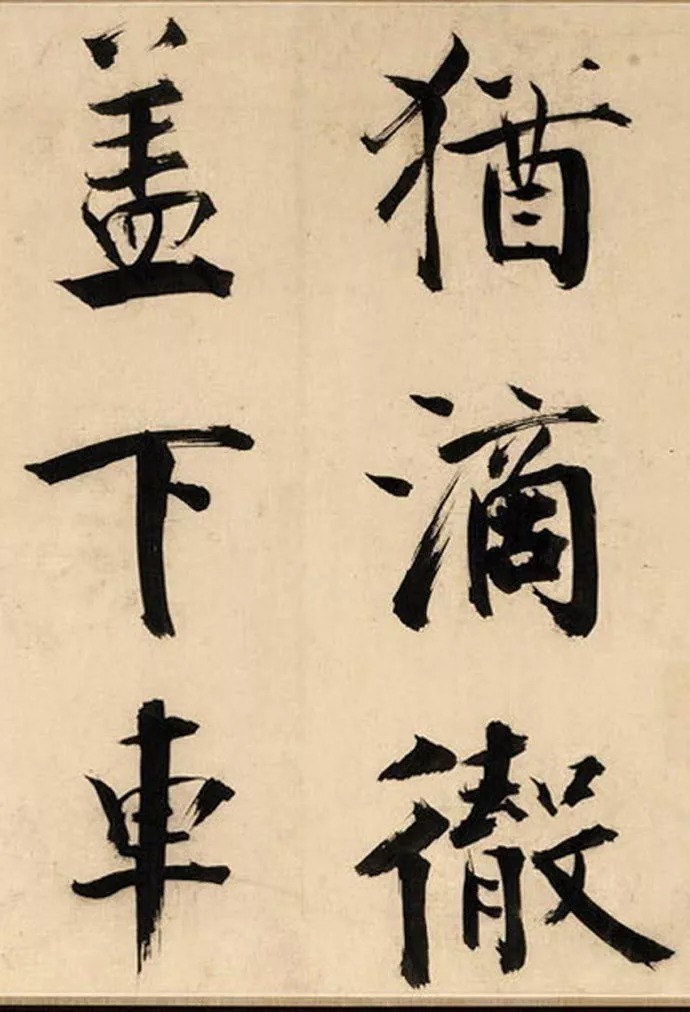 猶滴徹
盖下車